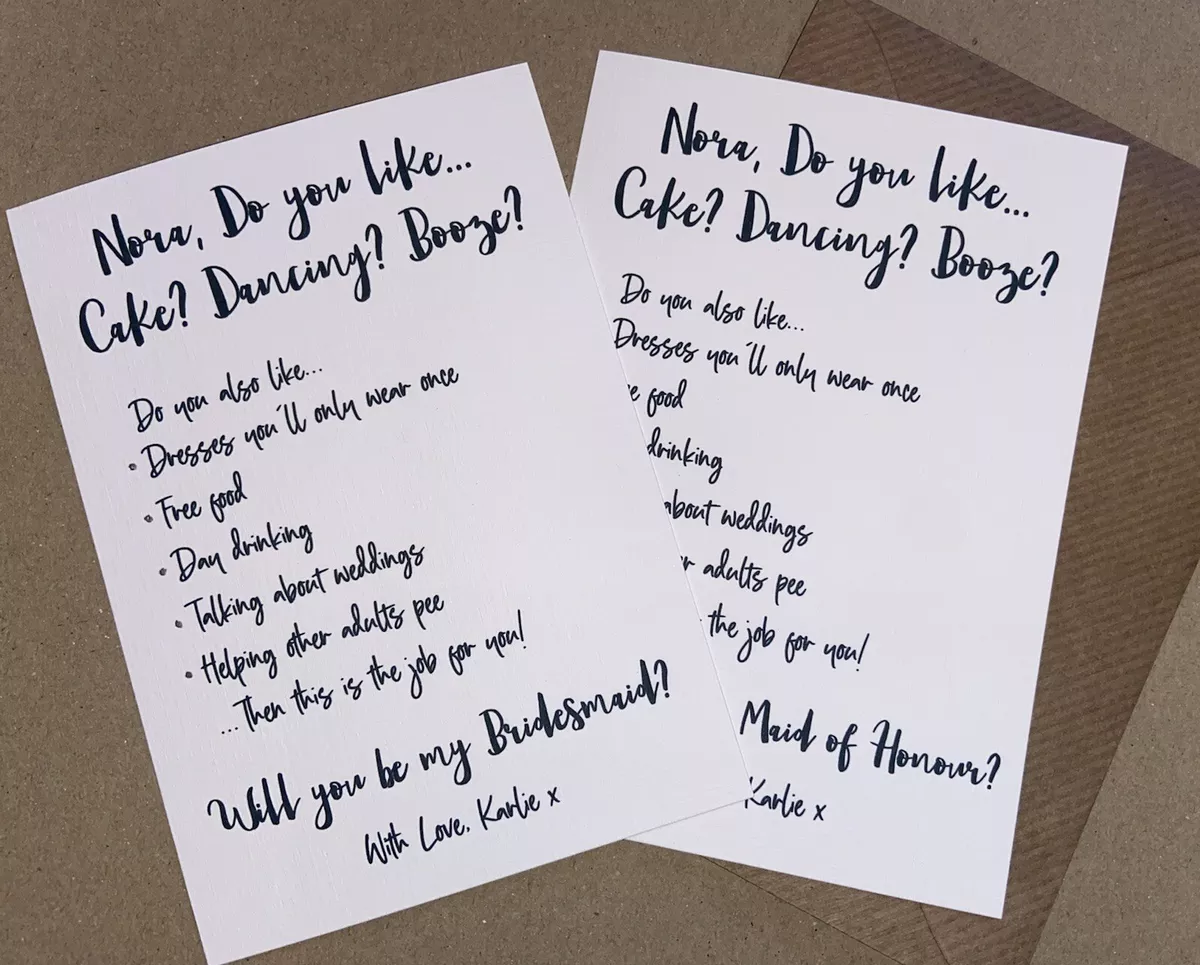 Nora, Do you like...
Cake? Dancing? Booze?
Do you also like...
• Dresses you'll only wear once
• Free food
• Day drinking
• Talking about weddings
• Helping other adults pee
...Then this is the job for you!
Will you be my Bridesmaid?
With Love, Karlie x
Nora, Do you like...
Cake? Dancing? Booze?
Do you also like...
Dresses you'll only wear once
e food
drinking
about weddings
r adults pee
the job for you!
Maid of Honour?
Karlie x